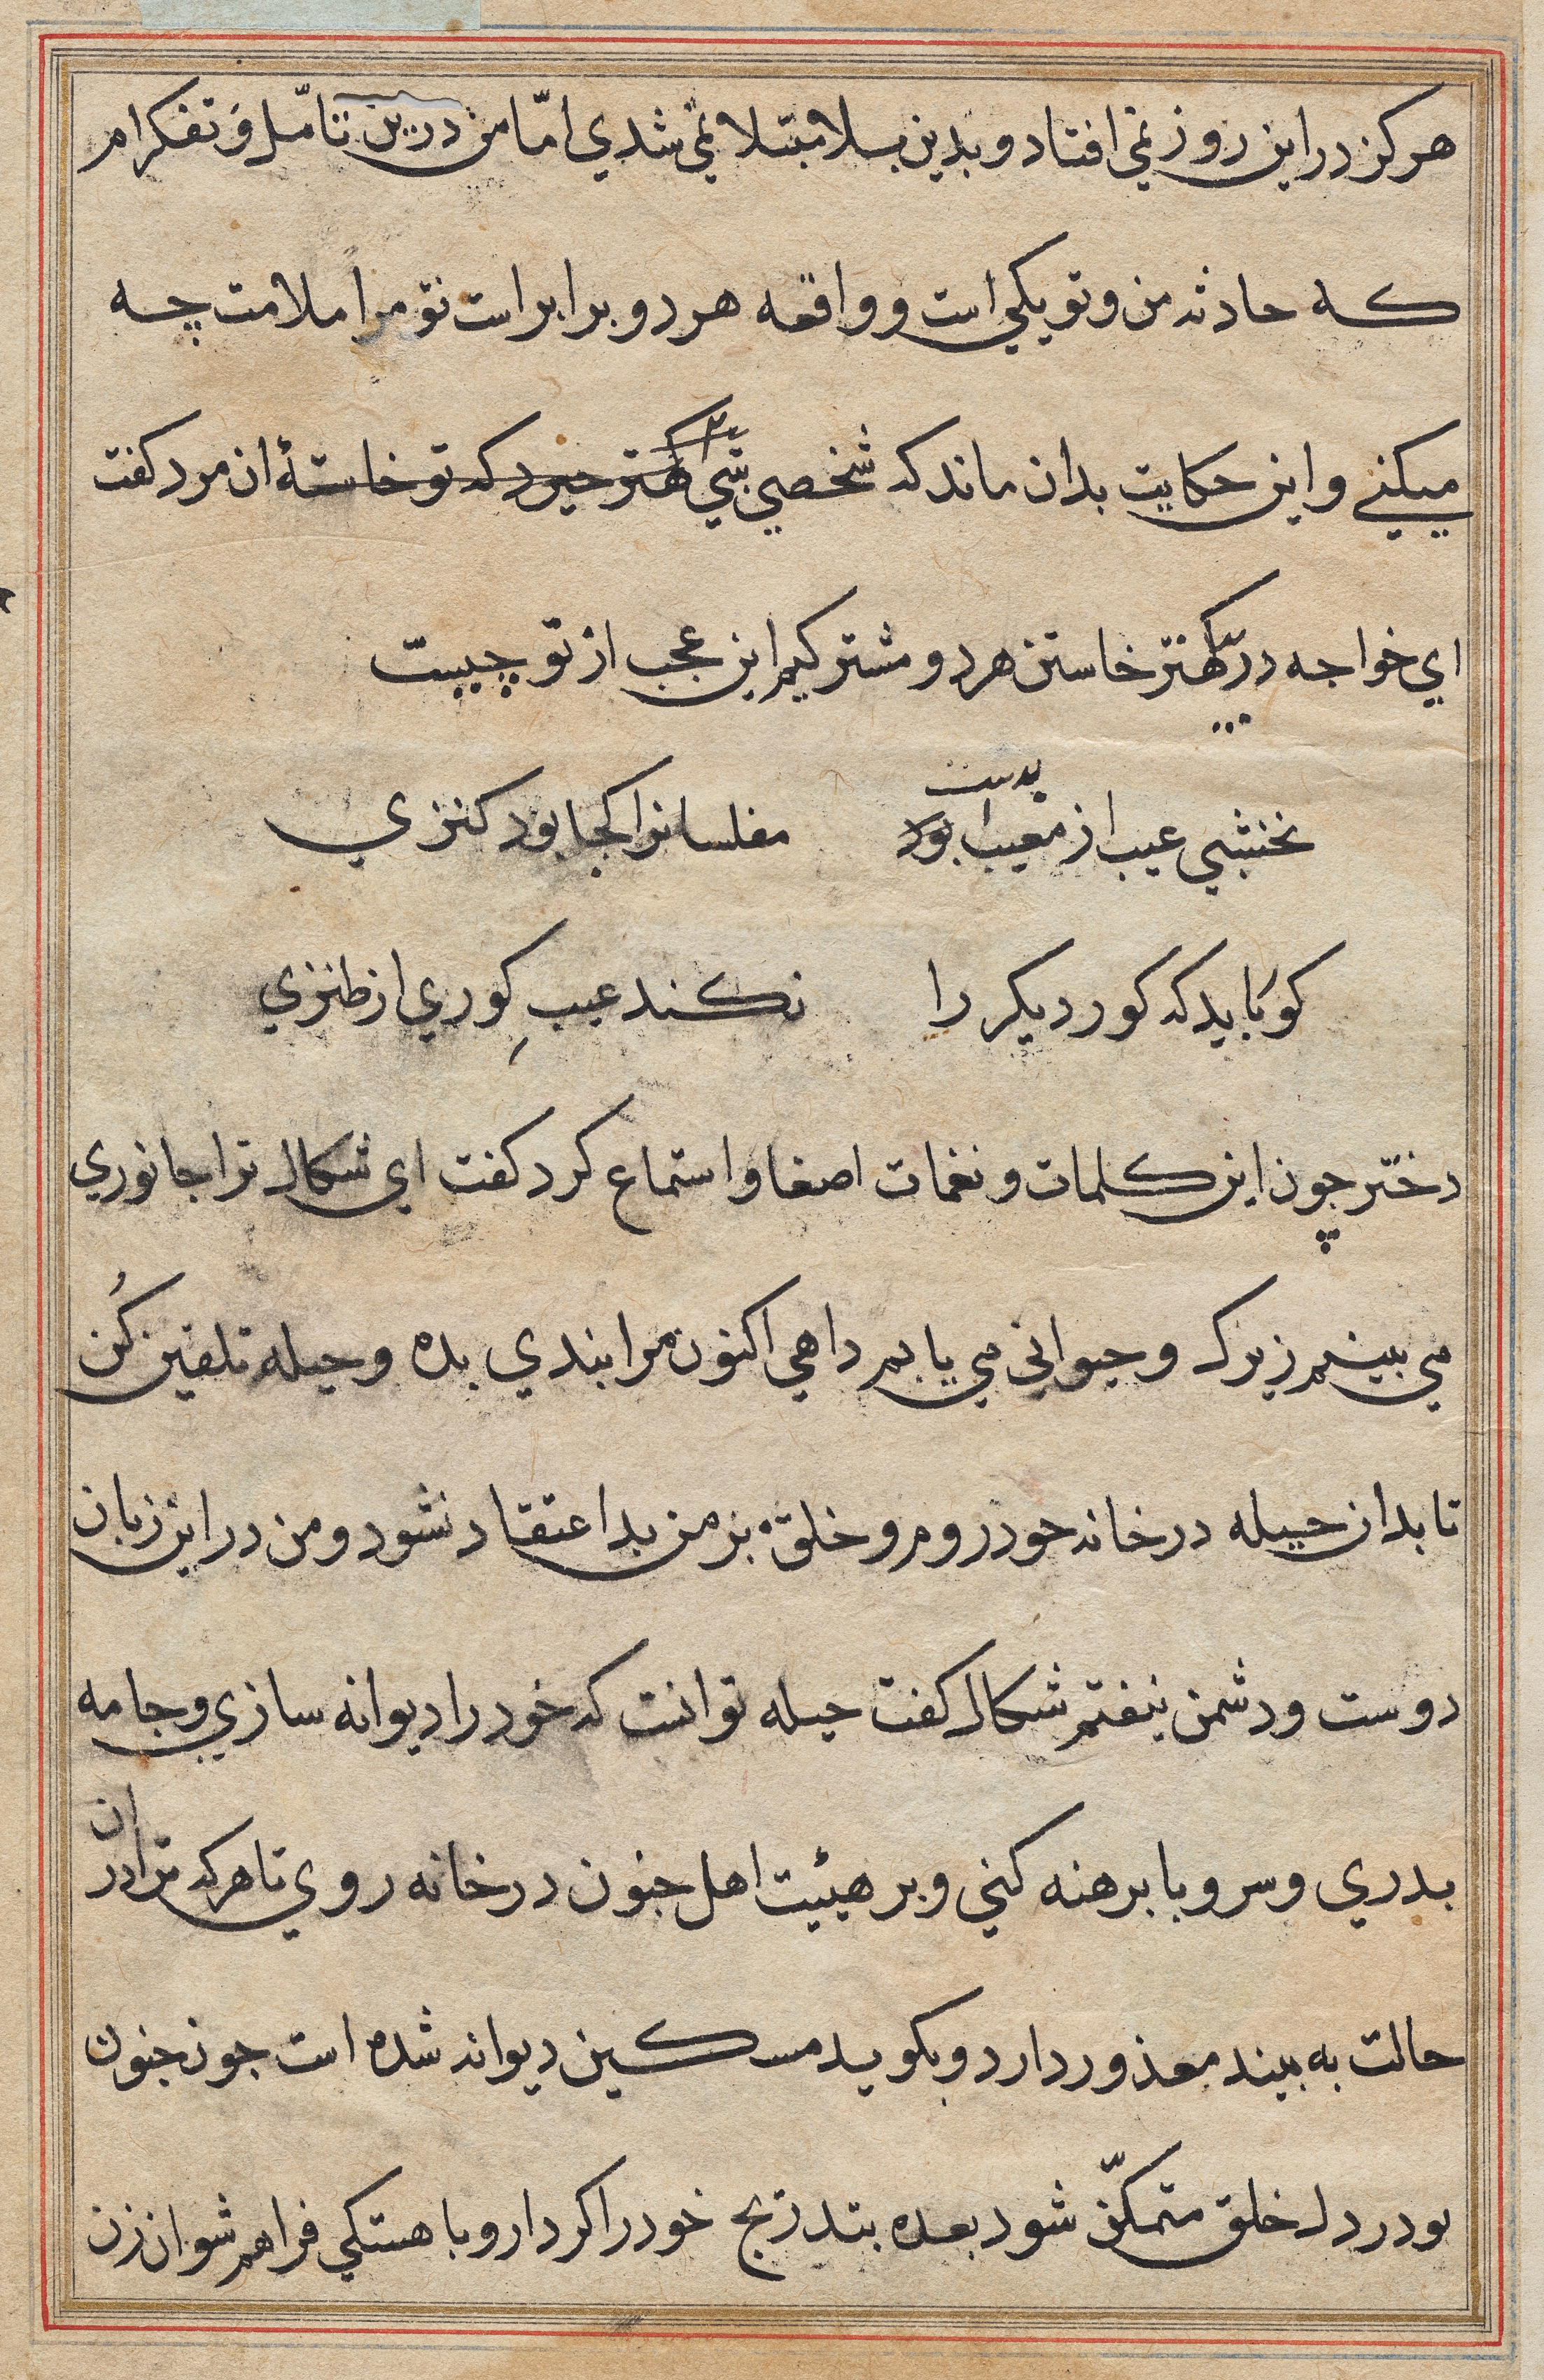 هرکز در این روز نمی افتاد و بدین بلا مبتلا نمی شدی امّا من درین تامّل وَ تفکرام
که حادثه من و تو یکی است و واقعه هر دو برابر است تو مرا ملامت چه
میکنی و این حکایت بدان ماند که شخصی شبی که تو خاستهٔ ان مرد کفت
ای خواجه در خاستن هر دو مشترکیم این عجب از تو چیست
نخشبی عیب از معیب بود بدست مفلسانرا کجا بود کنزی
کو نباید که کور دیکر را نکند عیبِ کوری از طنزی
دختر چون این کلمات و نغمات اصغا و استماع کرد کفت ای شکال ترا جانوری
می بینم زیرک و حیوانی می یابم داهی اکنون مرا بندی بده و حیله تلقین کُن
تا بدان حیله در خانه خود روم و خلق بر من بد اعتقاد نشود و من در این زبان
دوست و دشمن نیفتم شکال کفت حیله تو انست که خود را دیوانه سازی و جامه
بدری و سر و پا برهنه کنی و بر هیئیت اهل جنون در خانه روی تا هر که ترا در ان
حالت به بیند معذور دارد و بکوید مسکین دیوانه شده است چون جنون
تو در دل خلق متمکّن شود بعده بتدریج خود را کرد ار و باهستکی فراهم شو ان زن